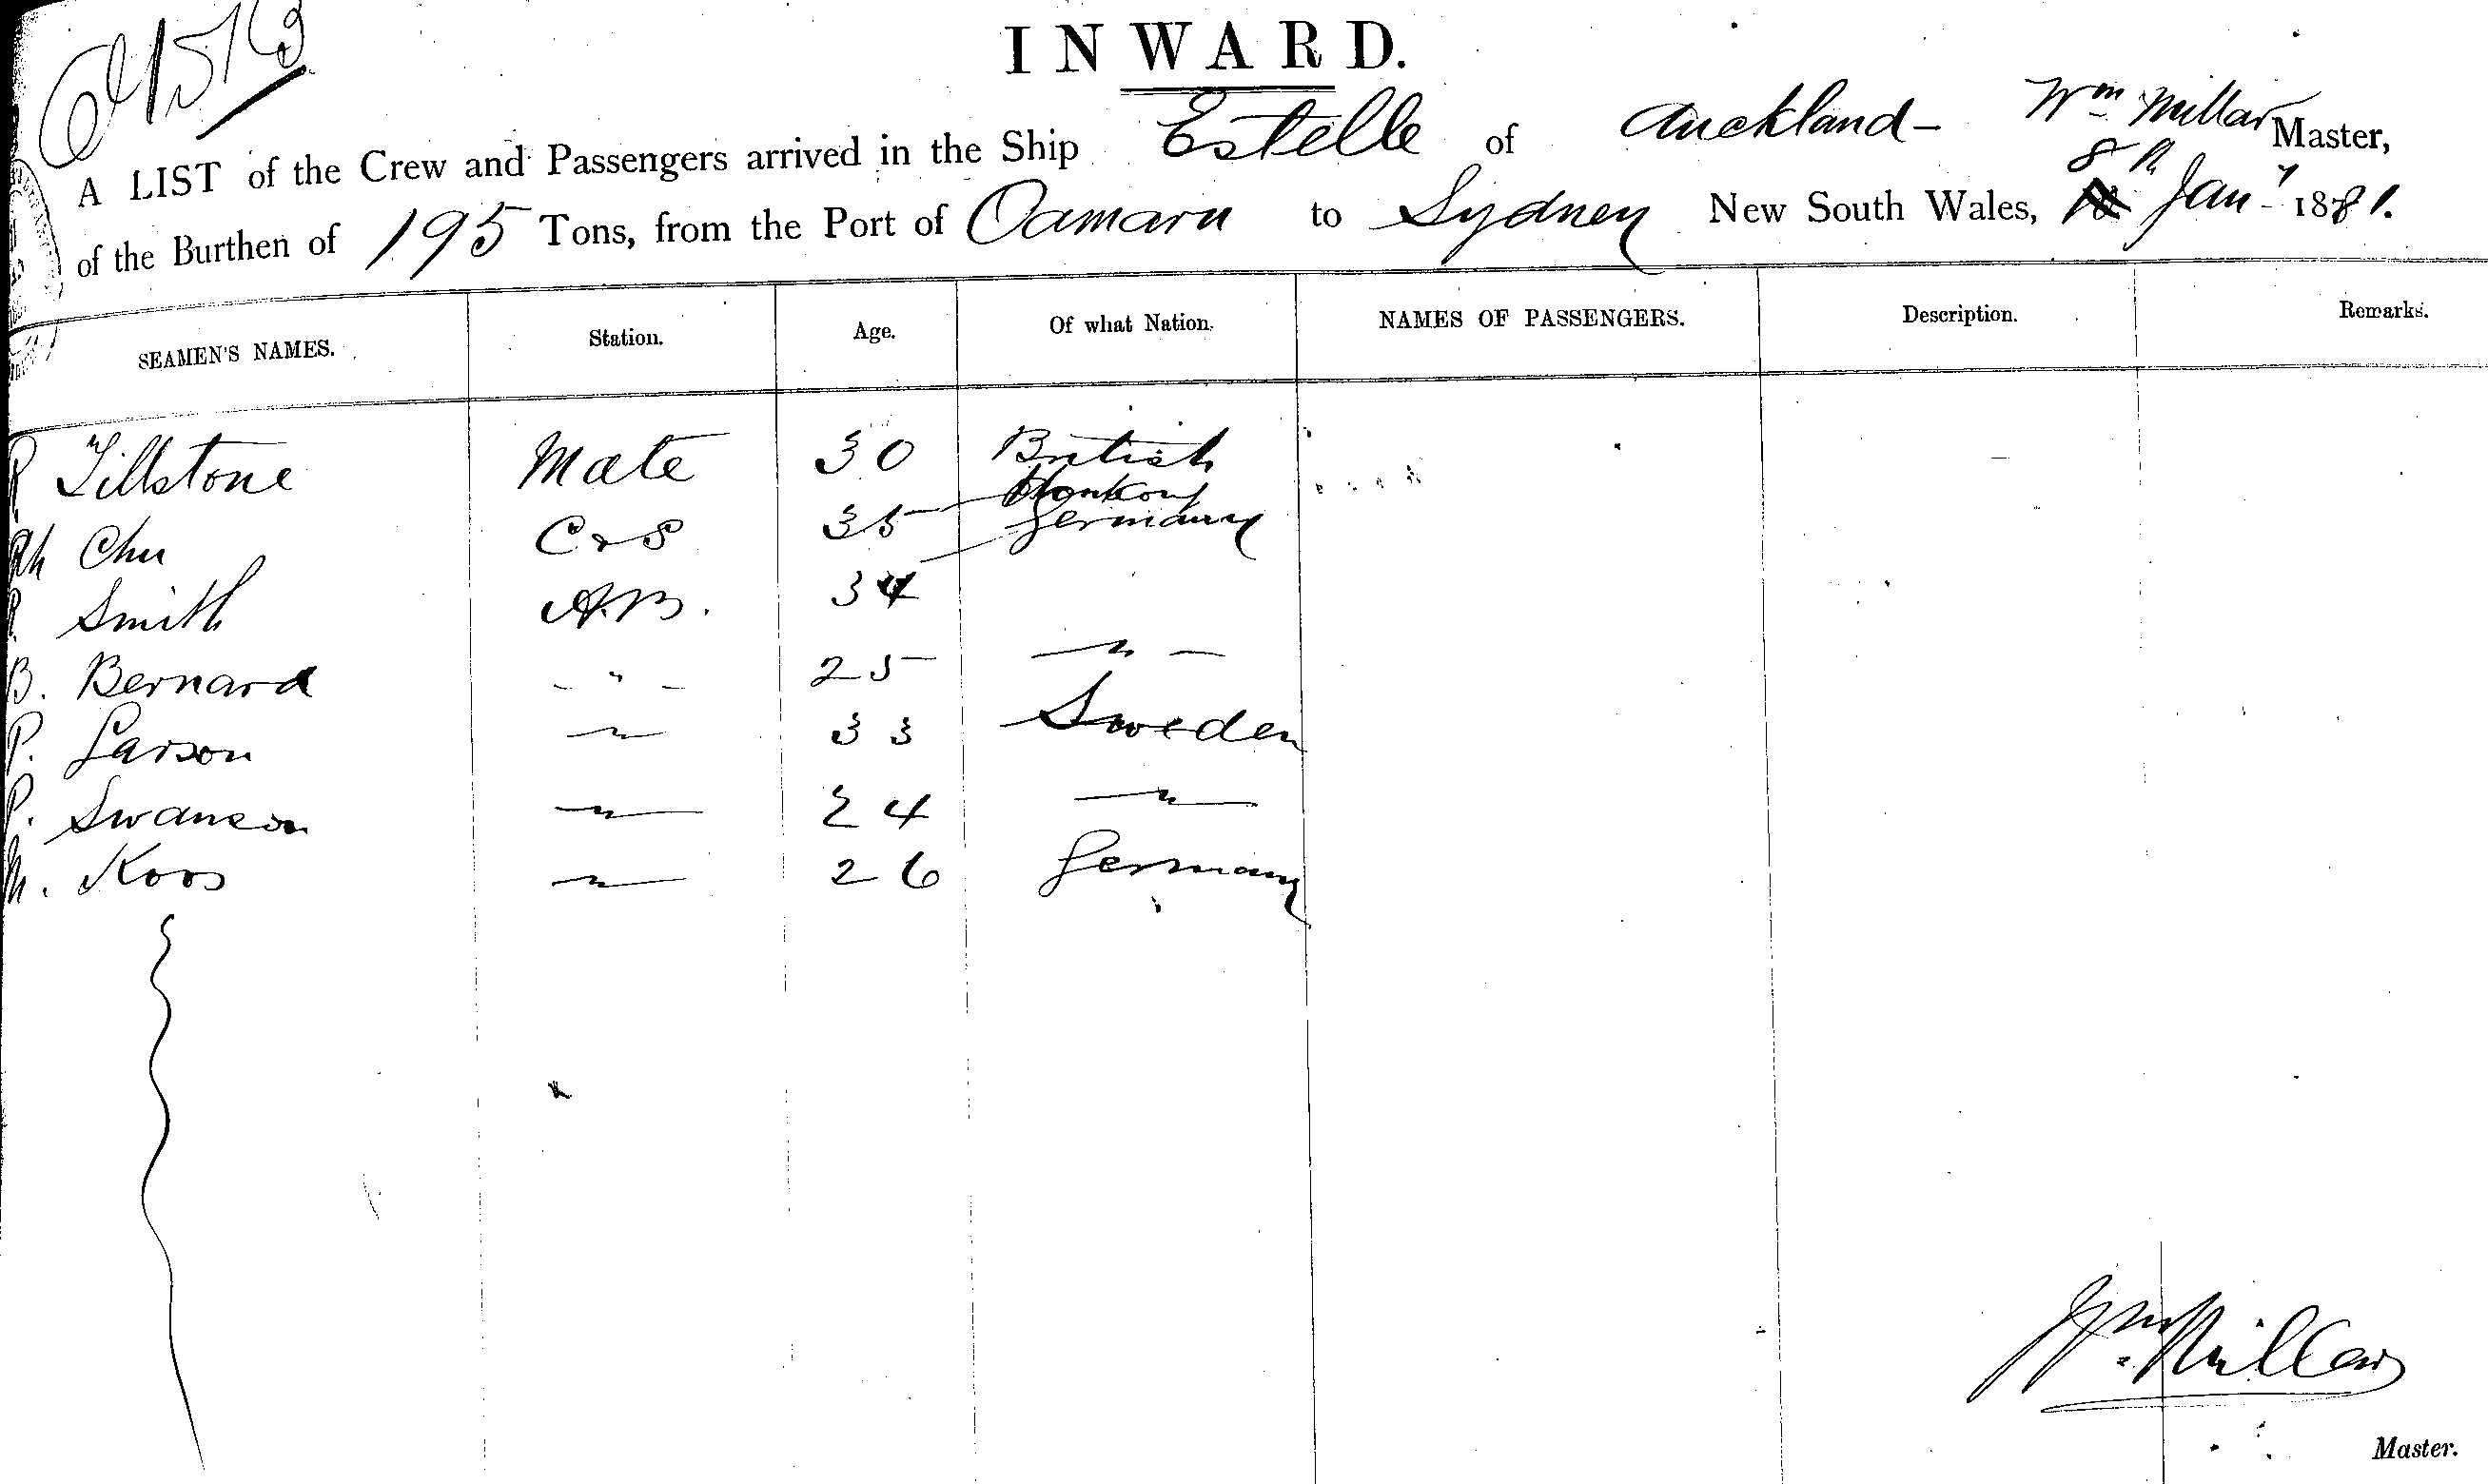 INWARD.
A LIST of the Crew and Passengers arrived in the Ship Estelle of Auckland - Wm Millar Master,
of the Burthen of 195 Tons, from the Port of Oamaru to Sydney New South Wales, 8th Jany 1881.
SEAMEN'S NAMES. Station. Age. Of what Nation. NAMES OF PASSENGERS. Description. Remarks.
R Tillstone Mate 30 British
Ah Chu C & S 35 Honkong
Smith A.B. 34 Germany
B. Bernard " 25 "
P. Larson " 33 Sweden
P. Swanson " 24 "
Koos " 26 Germany
Wm. Millar
Master.